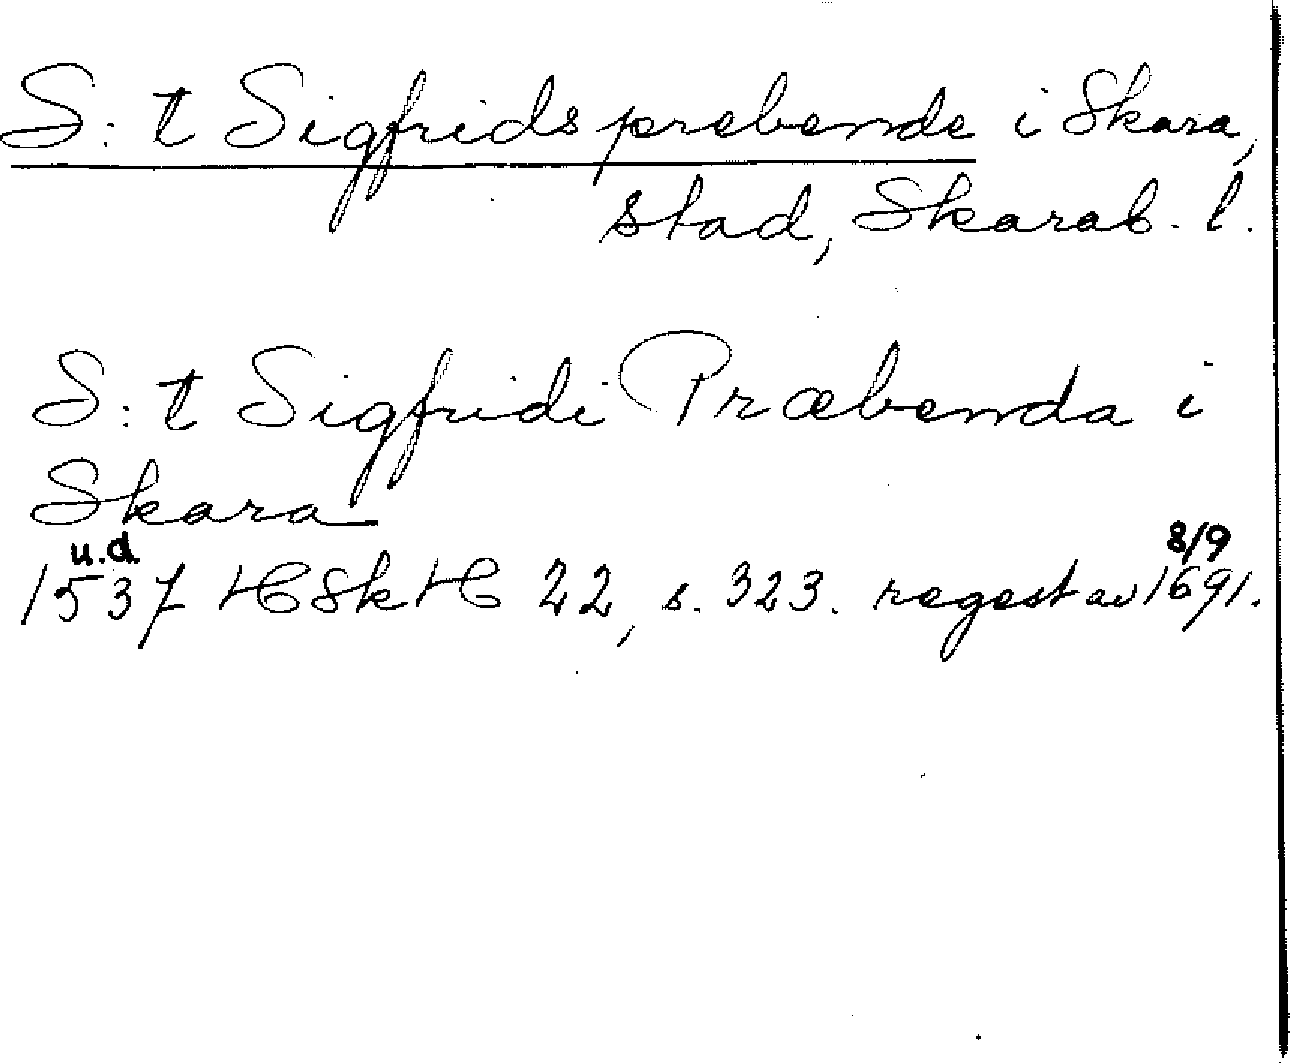 S:t Sigfridsprebende i Skara,
stad, Skarab. l.
S:t Sigfridi Præbenda i
Skara
u.d. 8/9
1537 HSkH 22, s. 323. regest av 1691.